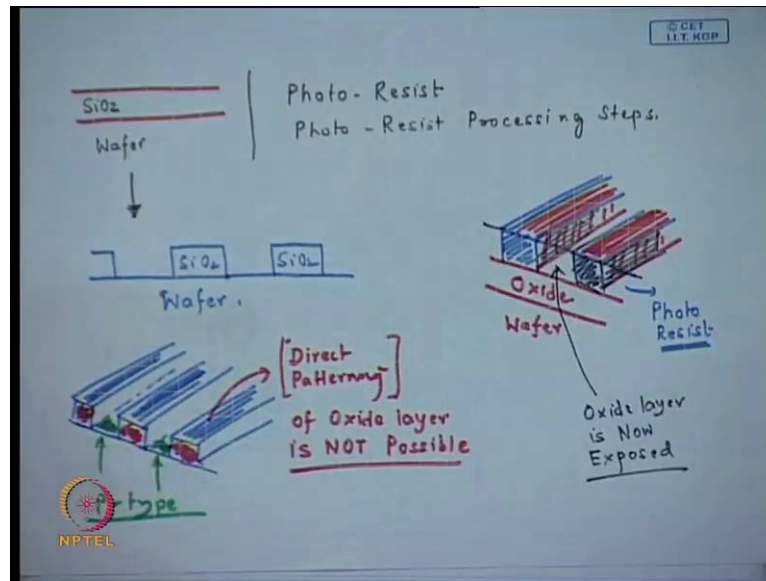 © CET
I.I.T. KGP
SiO2
Wafer
Photo - Resist
Photo - Resist Processing Steps.
SiO2
SiO2
Wafer.
Oxide
Wafer
Photo
Resist
[Direct
Patterning]
of Oxide layer
is NOT Possible
Oxide layer
is Now
Exposed
P-type
NPTEL